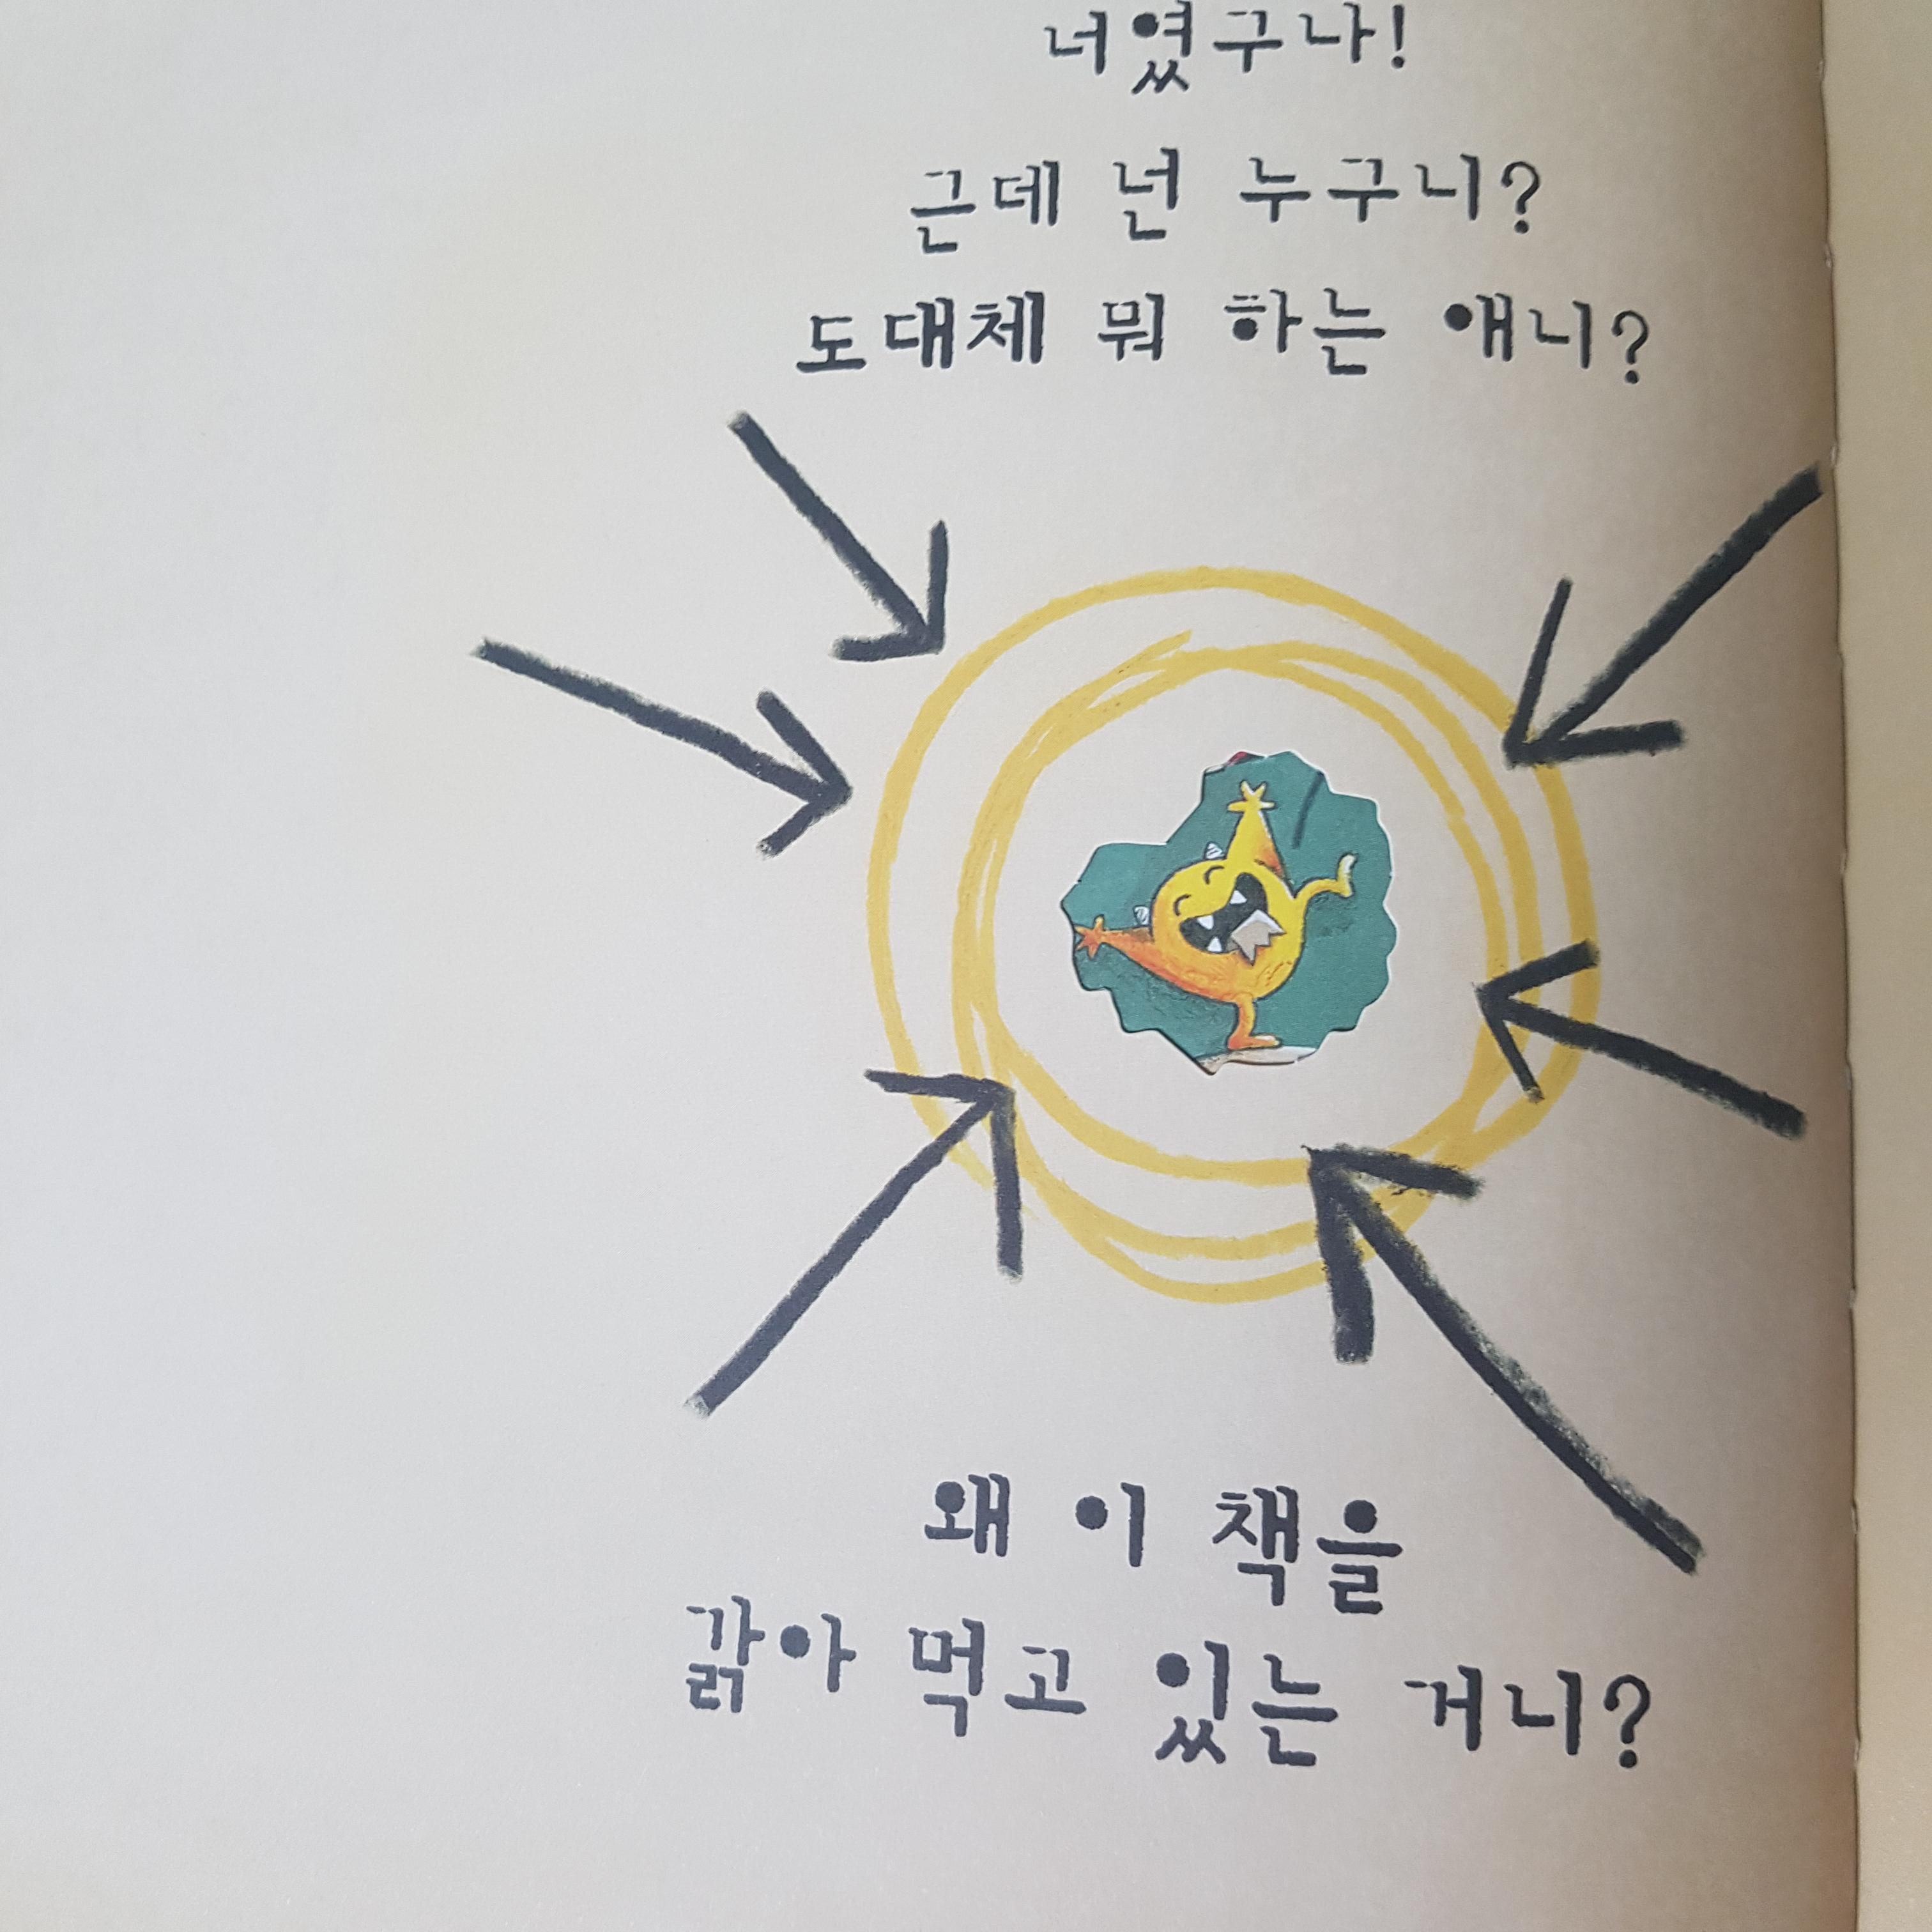 너였구나!
근데 넌 누구니?
도대체 뭐 하는 얘니?
왜 이 책을
갉아 먹고 있는 거니?